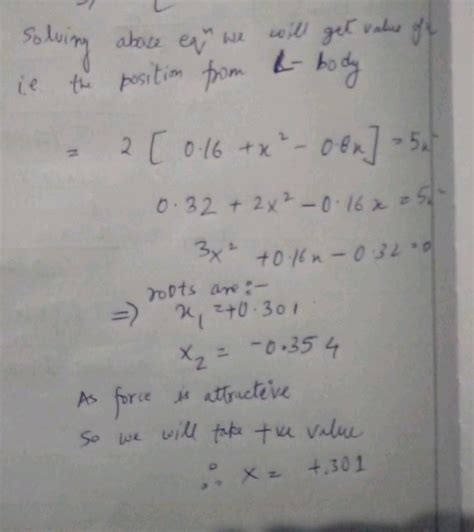 Solving above eqⁿ we will get value of x
i.e the position from L- body
= 2 [ 0.16 + x² - 0.8x] = 5x²
0.32 + 2x² - 0.16x = 5x²
3x² + 0.16x - 0.32 = 0
roots are :-
⇒ x₁ = +0.301
x₂ = -0.354
As force is attractive
So we will take +ve value
∴ x = +.301